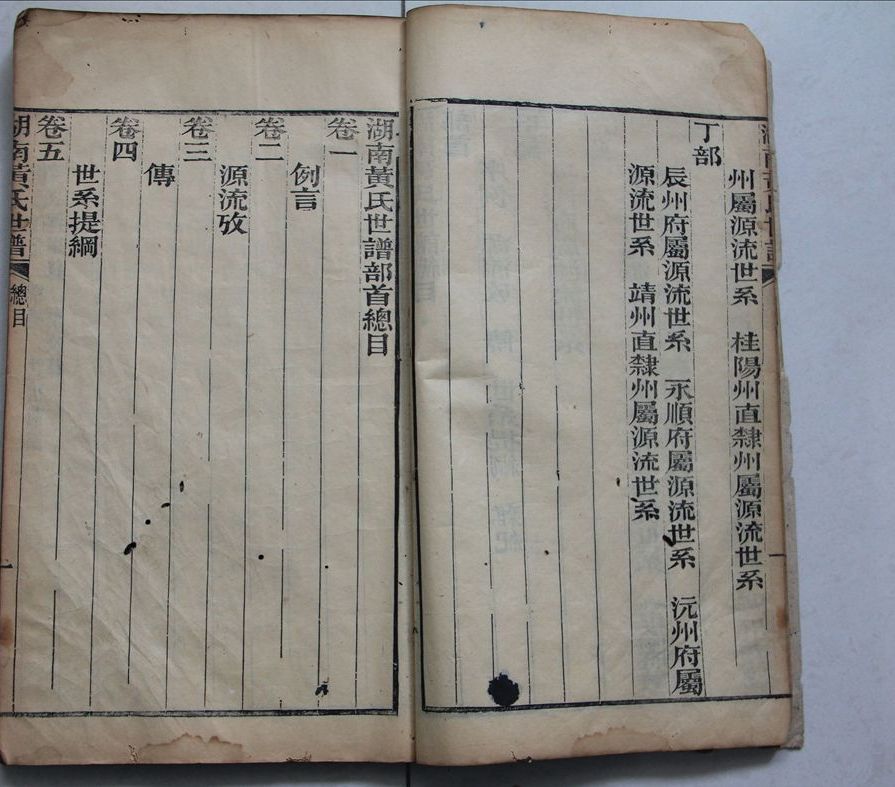 州屬源流世系　桂陽州直隸州屬源流世系
丁部
辰州府屬源流世系　永順府屬源流世系　沅州府屬
源流世系　靖州直隸州屬源流世系
湖南黃氏世譜部首總目
卷一
例言
卷二
源流攷
卷三
傳
卷四
世系提綱
卷五
湖南黃氏世譜　總目　一